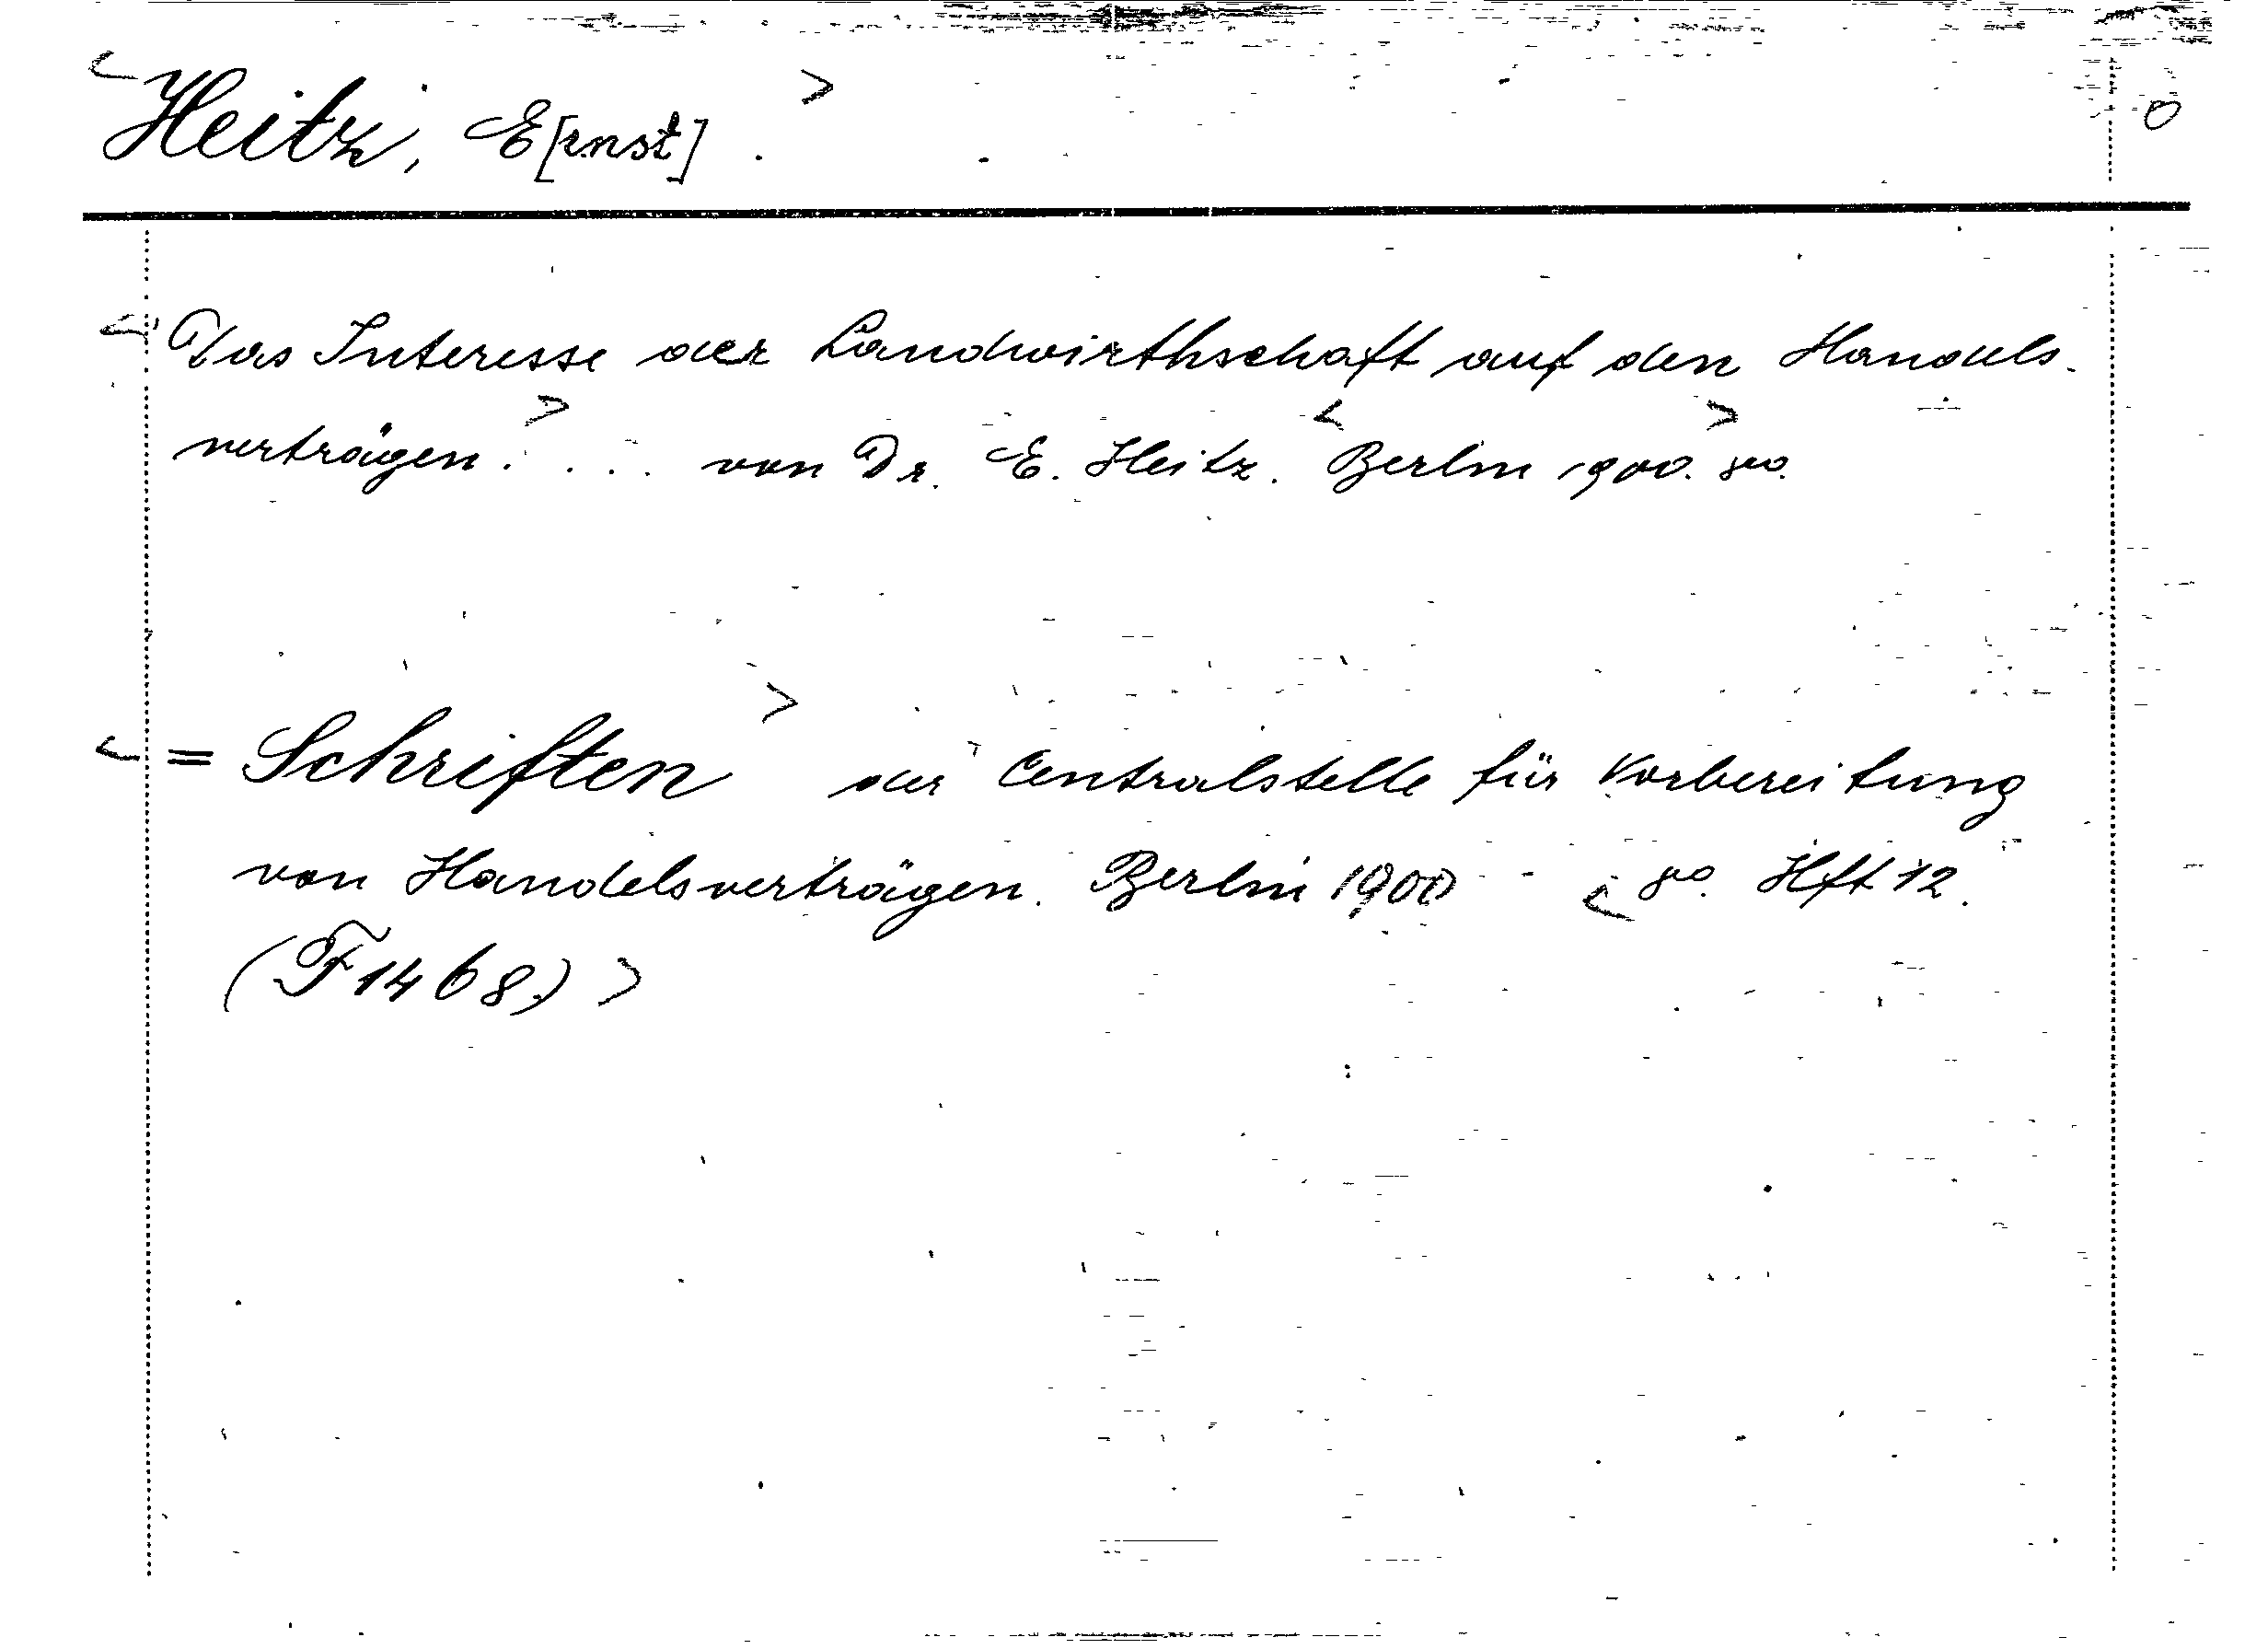 <Heitz, E[rnst]. > 0
<Das Interesse der Landwirthschaft auf den Handels-
verträgen. > . . . von Dr. E. Heitz. <Berlin 1900. > 8o.
<= Schriften > der Centralstelle für Vorbereitung
von Handelsverträgen. Berlin 1900 - - < 8o. Hft 12.
(F 1468.) >